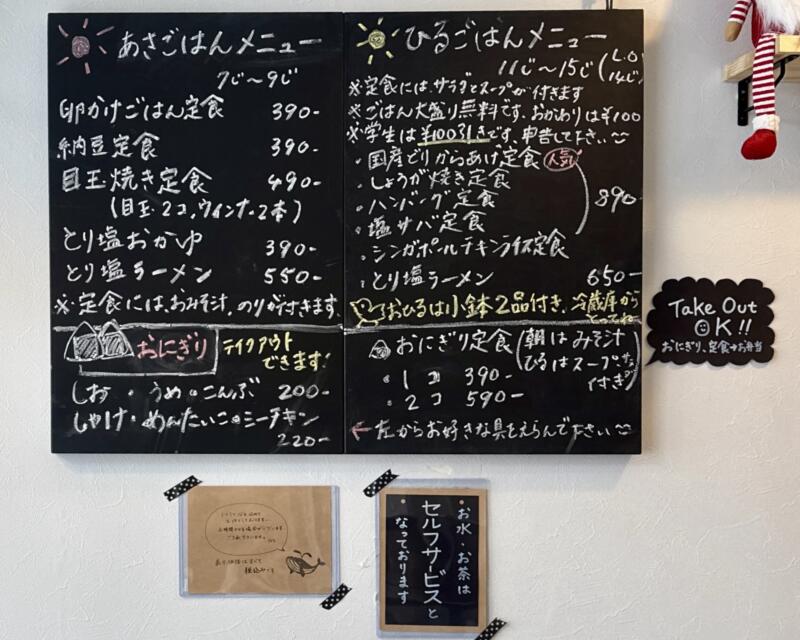 あさごはんメニュー
7じ〜9じ
卵かけごはん定食 390-
納豆定食 390-
目玉焼き定食 490-
(目玉2コ,ウィンナー2本)
とり塩おかゆ 390-
とり塩ラーメン 550-
※定食には、おみそ汁,のりが付きます
おにぎり テイクアウトできます!
しお・うめ・こんぶ 200-
しゃけ・めんたいこ・シーチキン
220-
ひるごはんメニュー
11じ〜15じ(L.O 14じ)
※定食には、サラダとスープが付きます
※ごはん大盛り無料です、おかわりは¥100
※学生は¥100引きです、申告して下さい
・国産どりからあげ定食 人気
・しょうが焼き定食
・ハンバーグ定食 890-
・塩サバ定食
・シンガポールチキンライス定食
・とり塩ラーメン 650-
おひるは小鉢2品付き、冷蔵庫からとってね
おにぎり定食(朝はみそ汁 ひるはスープ サラダ付き)
・1コ 390-
・2コ 590-
←左からお好きな具をえらんで下さい
Take Out
OK!!
おにぎり、定食→お弁当
表示価格はすべて
税込みです
お水・お茶は
セルフサービスと
なっております